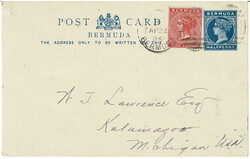 POST CARD
BERMUDA
THE ADDRESS ONLY TO BE WRITTEN
BERMUDA
HALFPENNY
A J Lawrence Esq
Kalamazoo
Michigan